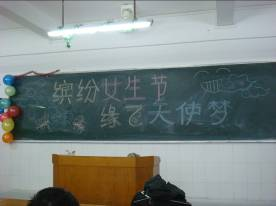 缤纷女生节
缘飞天使梦